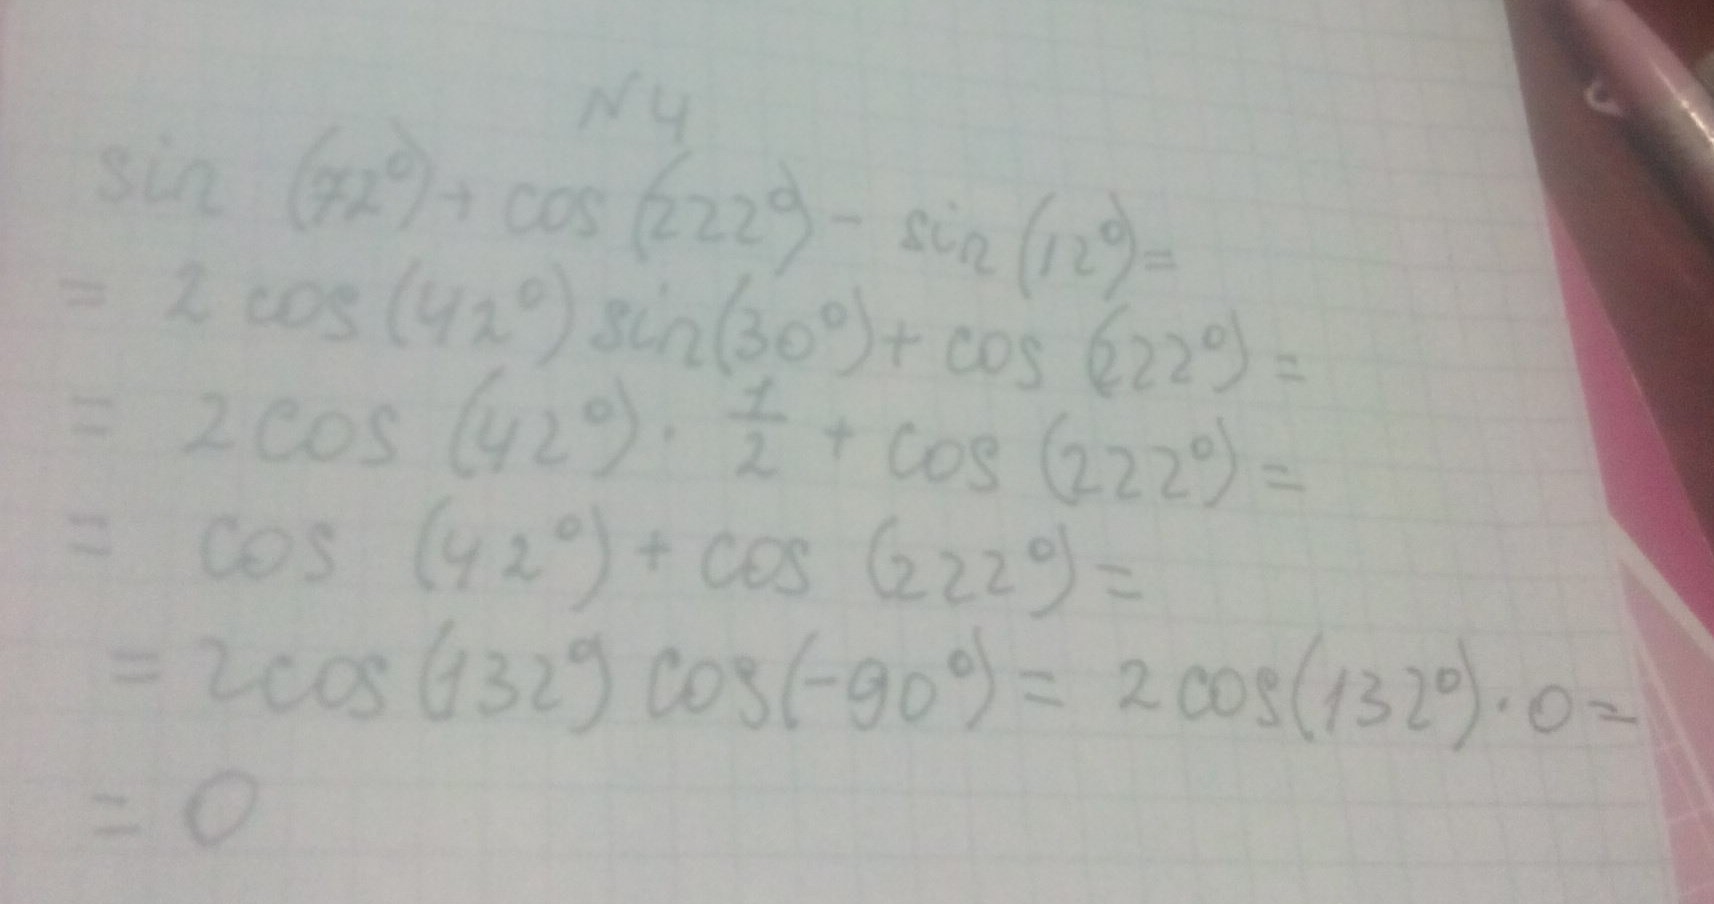 N4
sin (72°) + cos (222°) - sin (12°) =
= 2 cos (42°) sin (30°) + cos (222°) =
= 2 cos (42°) · 1/2 + cos (222°) =
= cos (42°) + cos (222°) =
= 2 cos (132°) cos (-90°) = 2 cos (132°) · 0 =
= 0